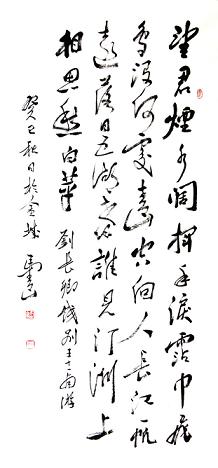 望君煙水闊揮手淚霑巾飛
鳥没何處青山空向人長江一帆
遠落日五湖春誰見汀洲上
相思愁白蘋
劉長卿餞別王十一南游
癸巳秋日於金城